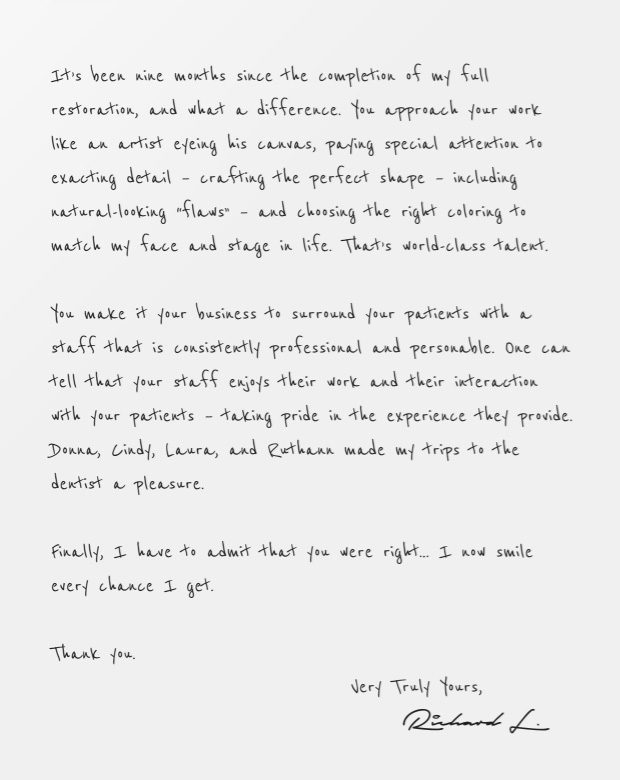 It's been nine months since the completion of my full
restoration, and what a difference. You approach your work
like an artist eyeing his canvas, paying special attention to
exacting detail – crafting the perfect shape – including
natural-looking "flaws" – and choosing the right coloring to
match my face and stage in life. That's world-class talent.
You make it your business to surround your patients with a
staff that is consistently professional and personable. One can
tell that your staff enjoys their work and their interaction
with your patients – taking pride in the experience they provide.
Donna, Cindy, Laura, and Ruthann made my trips to the
dentist a pleasure.
Finally, I have to admit that you were right... I now smile
every chance I get.
Thank you.
Very Truly Yours,
Richard L.